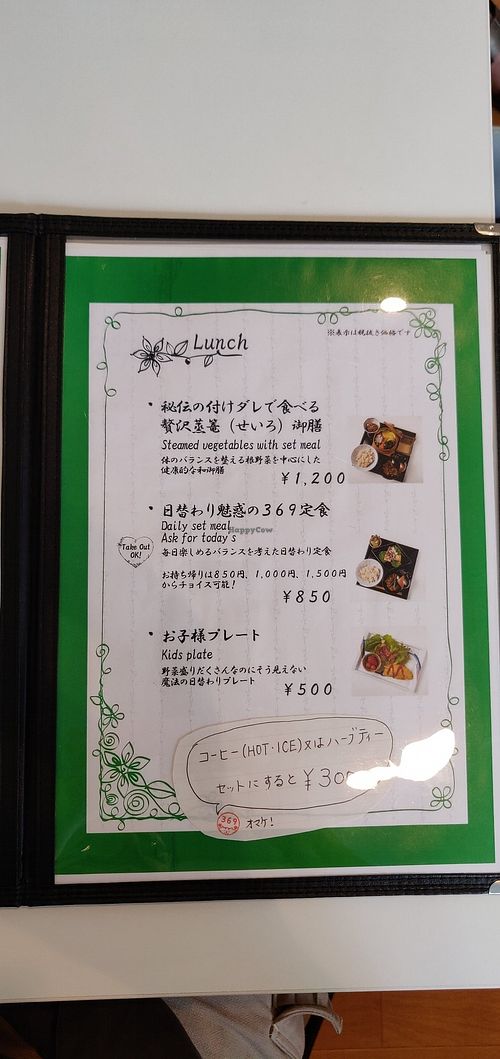 Lunch
※表示は税抜き価格です
・秘伝の付けダレで食べる
贅沢蒸篭（せいろ）御膳
Steamed vegetables with set meal
体のバランスを整える根野菜を中心にした
健康的な和御膳
￥1,200
・日替わり魅惑の３６９定食
Daily set meal
Ask for today's
HappyCow
毎日楽しめるバランスを考えた日替わり定食
Take Out
OK!
お持ち帰りは８５０円、１，０００円、１，５００円
からチョイス可能！
￥850
・お子様プレート
Kids plate
野菜盛りだくさんなのにそう見えない
魔法の日替わりプレート
￥500
コーヒー(HOT・ICE)又はハーブティー
セットにすると ￥30
369 オマケ！